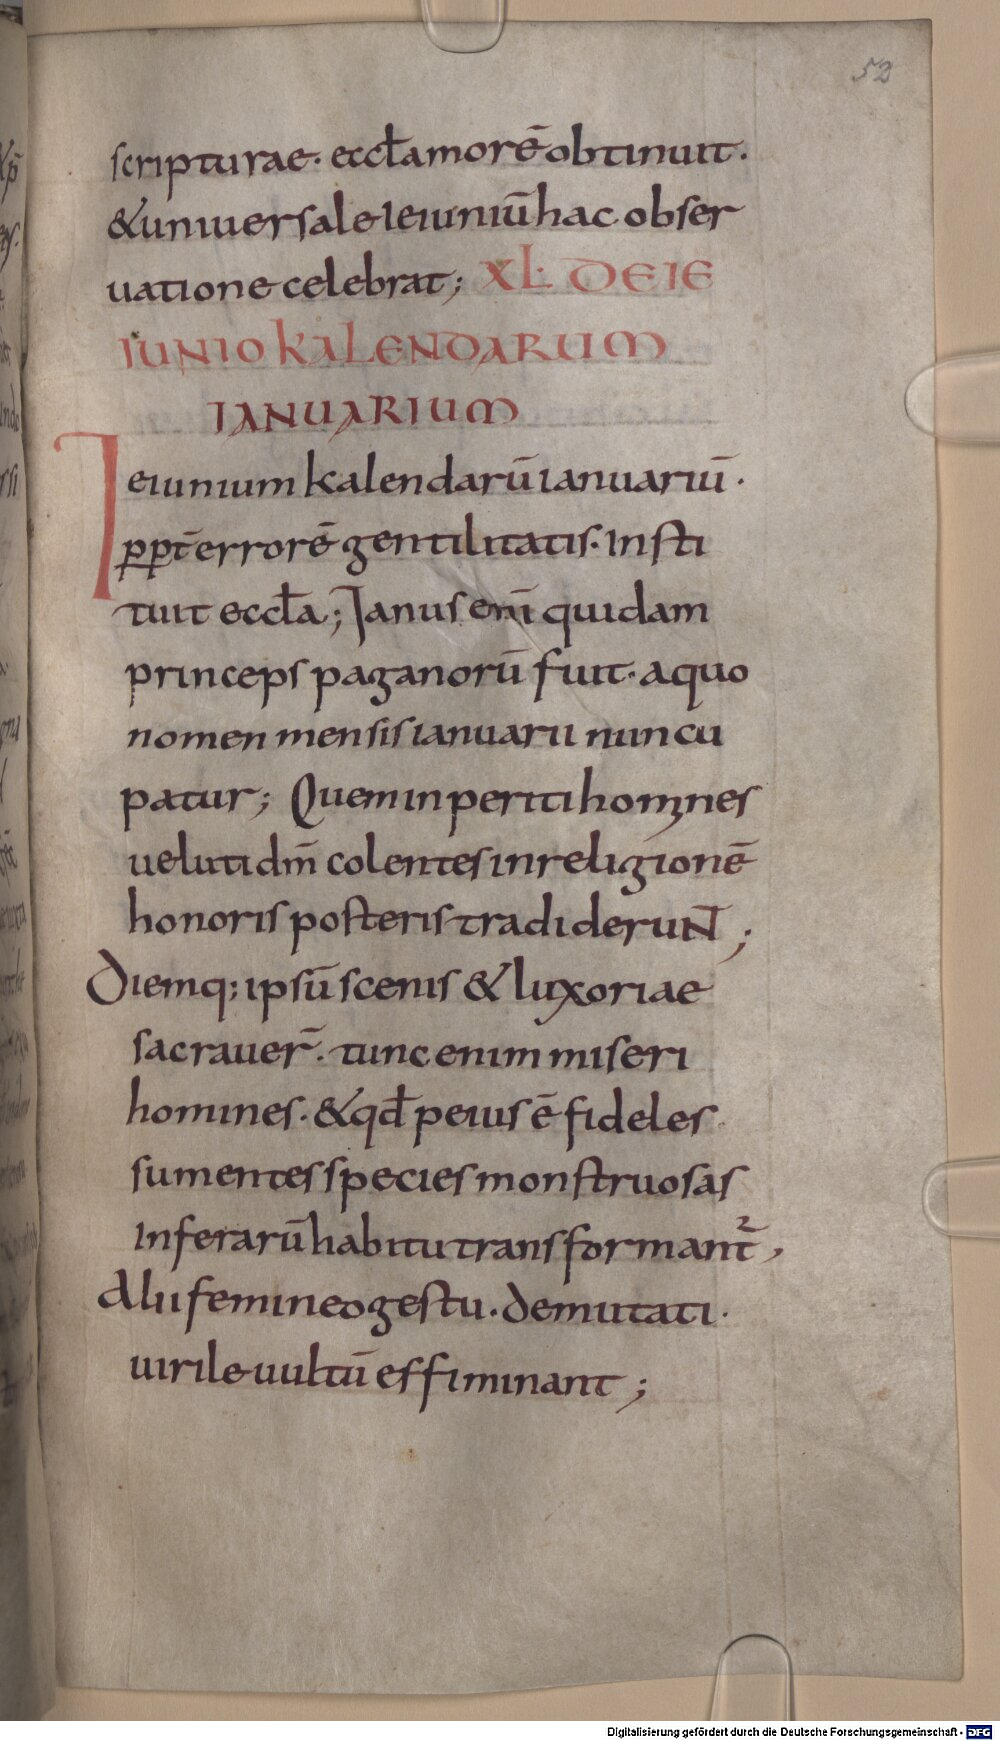 52
scripturae· eccła morē obtinuit·
& uniuersale ieiuniū hac obser
uatione celebrat; XL· DE IE
IUNIO KALENDARUM
IANUARIUM
Ieiunium kalendarū ianuariū·
ꝓpt̄ errorē gentilitatis· Insti
tuit eccła; Ianus enī quidam
princeps paganorū fuit· a quo
nomen mensis ianuarii nuncu
patur; Quem inperiti homines
ueluti dm̄ colentes in religionē
honoris posteris tradideruN̄;
Diemq; ipsū scenis & luxoriae
sacrauer̄· tunc enim miseri
homines· & qđ peius ē fideles
sumentes species monstruosas
In ferarū habitu transformant᷑,
Alii femineo gestu· demutati·
uirile uultū effiminant;
Digitalisierung gefördert durch die Deutsche Forschungsgemeinschaft - DFG